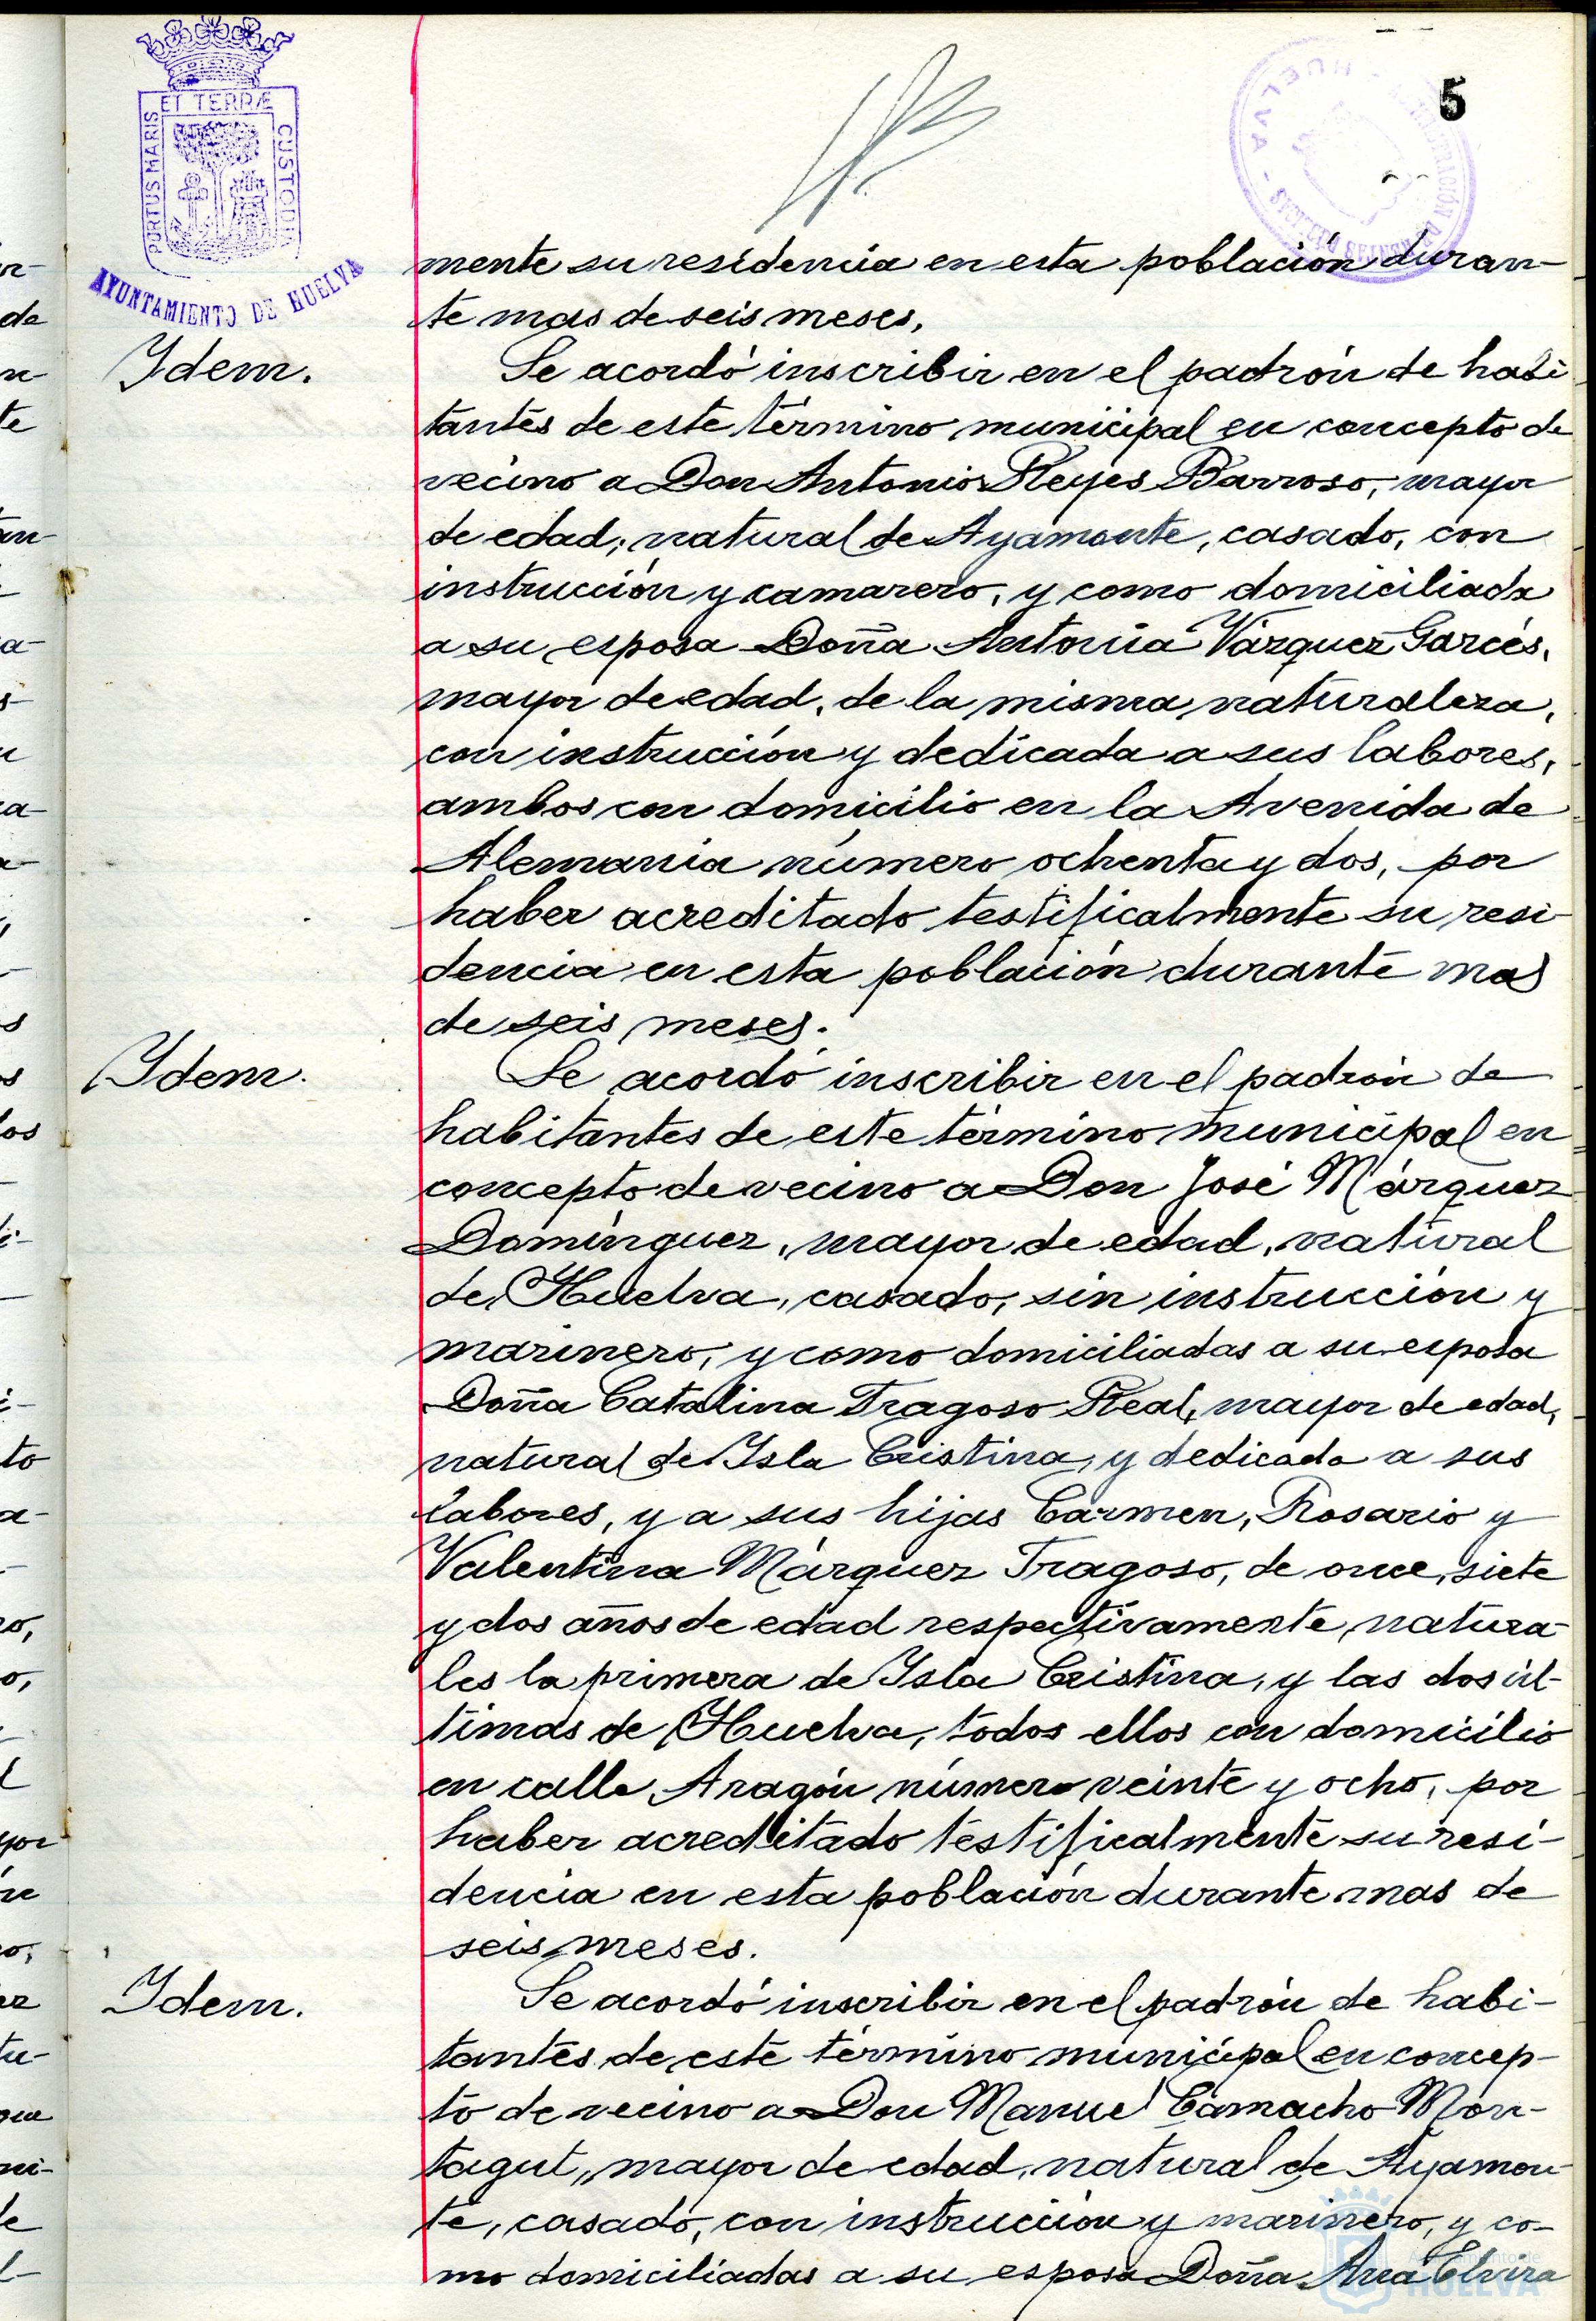 5
PORTUS MARIS ET TERRÆ CUSTODIA
AYUNTAMIENTO DE HUELVA
mente su residencia en esta población duran-
te mas de seis meses,
Idem.
Se acordó inscribir en el padrón de habi
tantes de este término municipal en concepto de
vecino a Don Antonio Reyes Barroso, mayor
de edad, natural de Ayamonte, casado, con
instrucción y camarero, y como domiciliada
a su esposa Doña Antonia Vázquez Garcés,
mayor de edad, de la misma naturaleza,
con instrucción y dedicada a sus labores,
ambos con domicilio en la Avenida de
Alemania número ochenta y dos, por
haber acreditado testificalmente su resi-
dencia en esta población durante mas
de seis meses.
Idem.
Se acordó inscribir en el padrón de
habitantes de este término municipal en
concepto de vecino a Don José Márquez
Domínguez, mayor de edad, natural
de Huelva, casado, sin instrucción y
marinero, y como domiciliadas a su esposa
Doña Catalina Fragoso Real, mayor de edad,
natural de Isla Cristina, y dedicada a sus
labores, y a sus hijas Carmen, Rosario y
Valentina Márquez Fragoso, de once, siete
y dos años de edad respectivamente, natura-
les la primera de Isla Cristina, y las dos úl-
timas de Huelva, todos ellos con domicilio
en calle Aragón número veinte y ocho, por
haber acreditado testificalmente su resi-
dencia en esta población durante mas de
seis meses.
Idem.
Se acordó inscribir en el padrón de habi-
tantes de este término municipal en concep-
to de vecino a Don Manuel Camacho Mon-
tagut, mayor de edad, natural de Ayamon-
te, casado, con instrucción y marinero, y co-
mo domiciliadas a su esposa Doña Ana Elvira
Ayuntamiento de
HUELVA